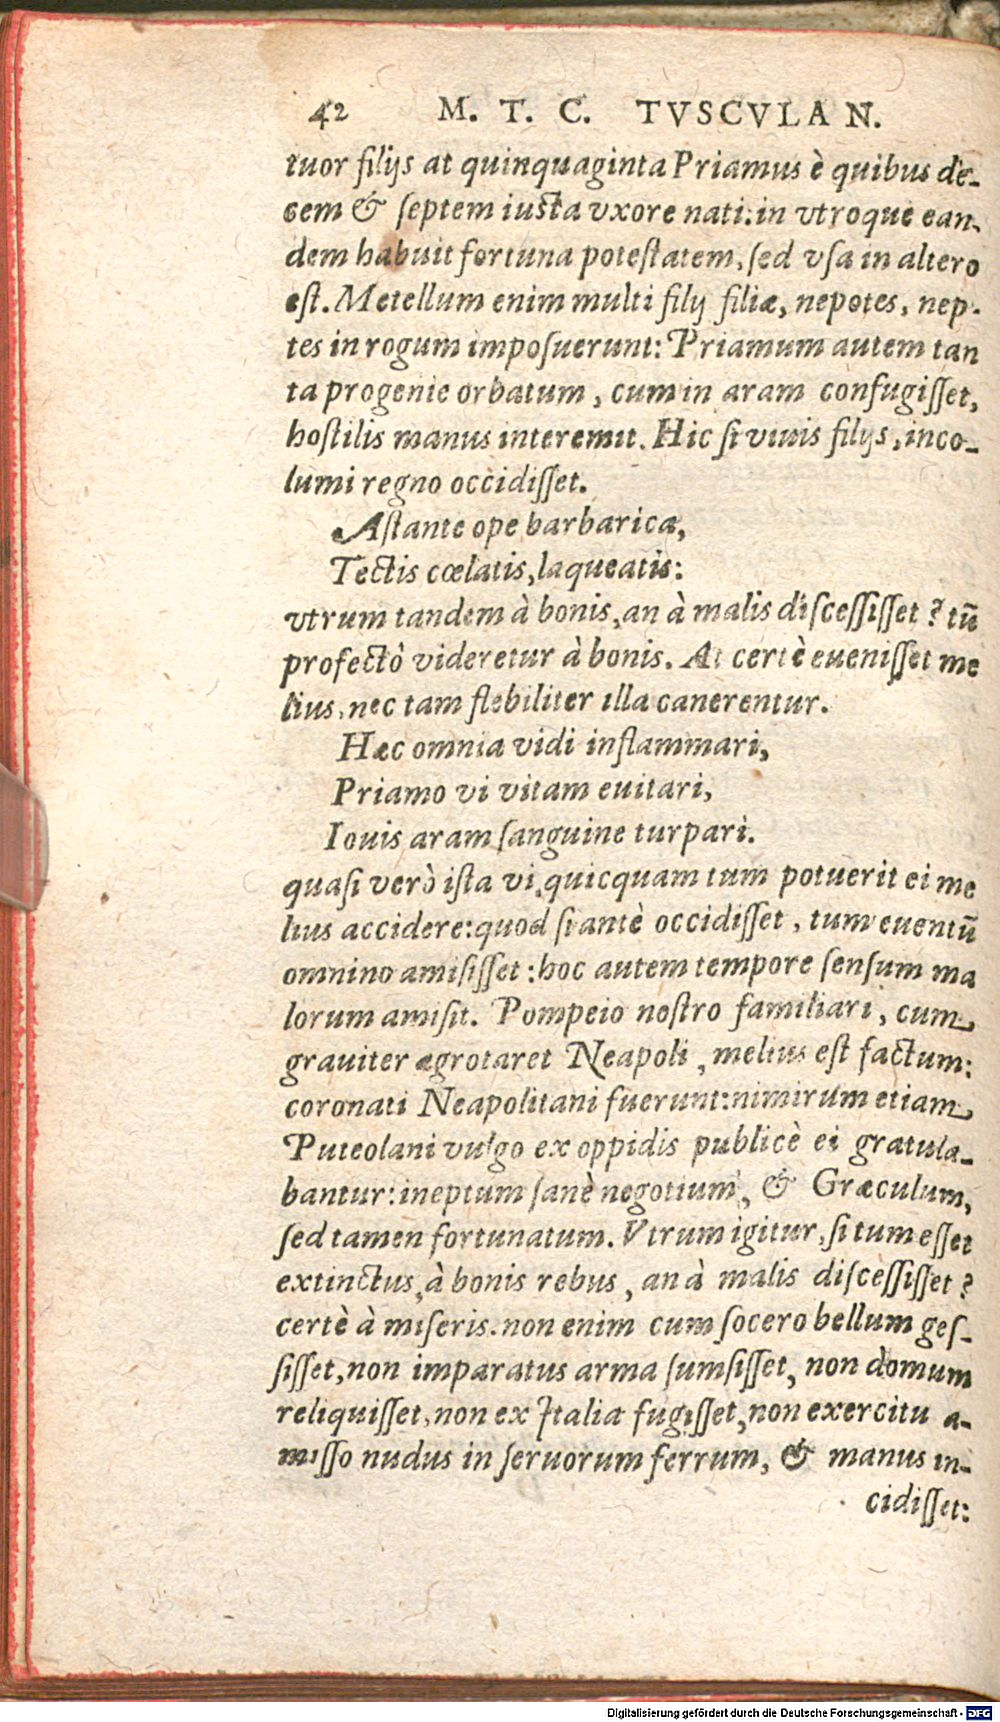 42 M. T. C. TVSCVLAN.
tuor filijs at quinquaginta Priamus è quibus de-
cem & ſeptem iuſta vxore nati: in vtroque ean-
dem habuit fortuna poteſtatem, ſed vſa in altero
eſt. Metellum enim multi filij filiæ, nepotes, nep-
tes in rogum impoſuerunt: Priamum autem tan
ta progenie orbatum, cum in aram confugiſſet,
hoſtilis manus interemit. Hic ſi viuis filijs, inco-
lumi regno occidiſſet.
Aſtante ope barbarica,
Tectis cœlatis, laqueatis:
vtrum tandem à bonis, an à malis diſceſſiſſet? tū
profectò videretur à bonis. At certè eueniſſet me
lius, nec tam flebiliter illa canerentur.
Hæc omnia vidi inflammari,
Priamo vi vitam euitari,
Iouis aram ſanguine turpari.
quaſi verò iſta vi, quicquam tum potuerit ei me
lius accidere: quod ſi antè occidiſſet, tum euentū
omnino amiſiſſet: hoc autem tempore ſenſum ma
lorum amiſit. Pompeio noſtro familiari, cum
grauiter ægrotaret Neapoli, melius eſt factum:
coronati Neapolitani fuerunt: nimirum etiam
Puteolani vulgo ex oppidis publicè ei gratula-
bantur: ineptum ſanè negotium, & Græculum,
ſed tamen fortunatum. Vtrum igitur, ſi tum eſſet
extinctus, à bonis rebus, an à malis diſceſſiſſet?
certè à miſeris. non enim cum ſocero bellum geſ-
ſiſſet, non imparatus arma ſumſiſſet, non domum
reliquiſſet, non ex Italia fugiſſet, non exercitu a-
miſſo nudus in ſeruorum ferrum, & manus in-
cidiſſet:
Digitalisierung gefördert durch die Deutsche Forschungsgemeinschaft - DFG